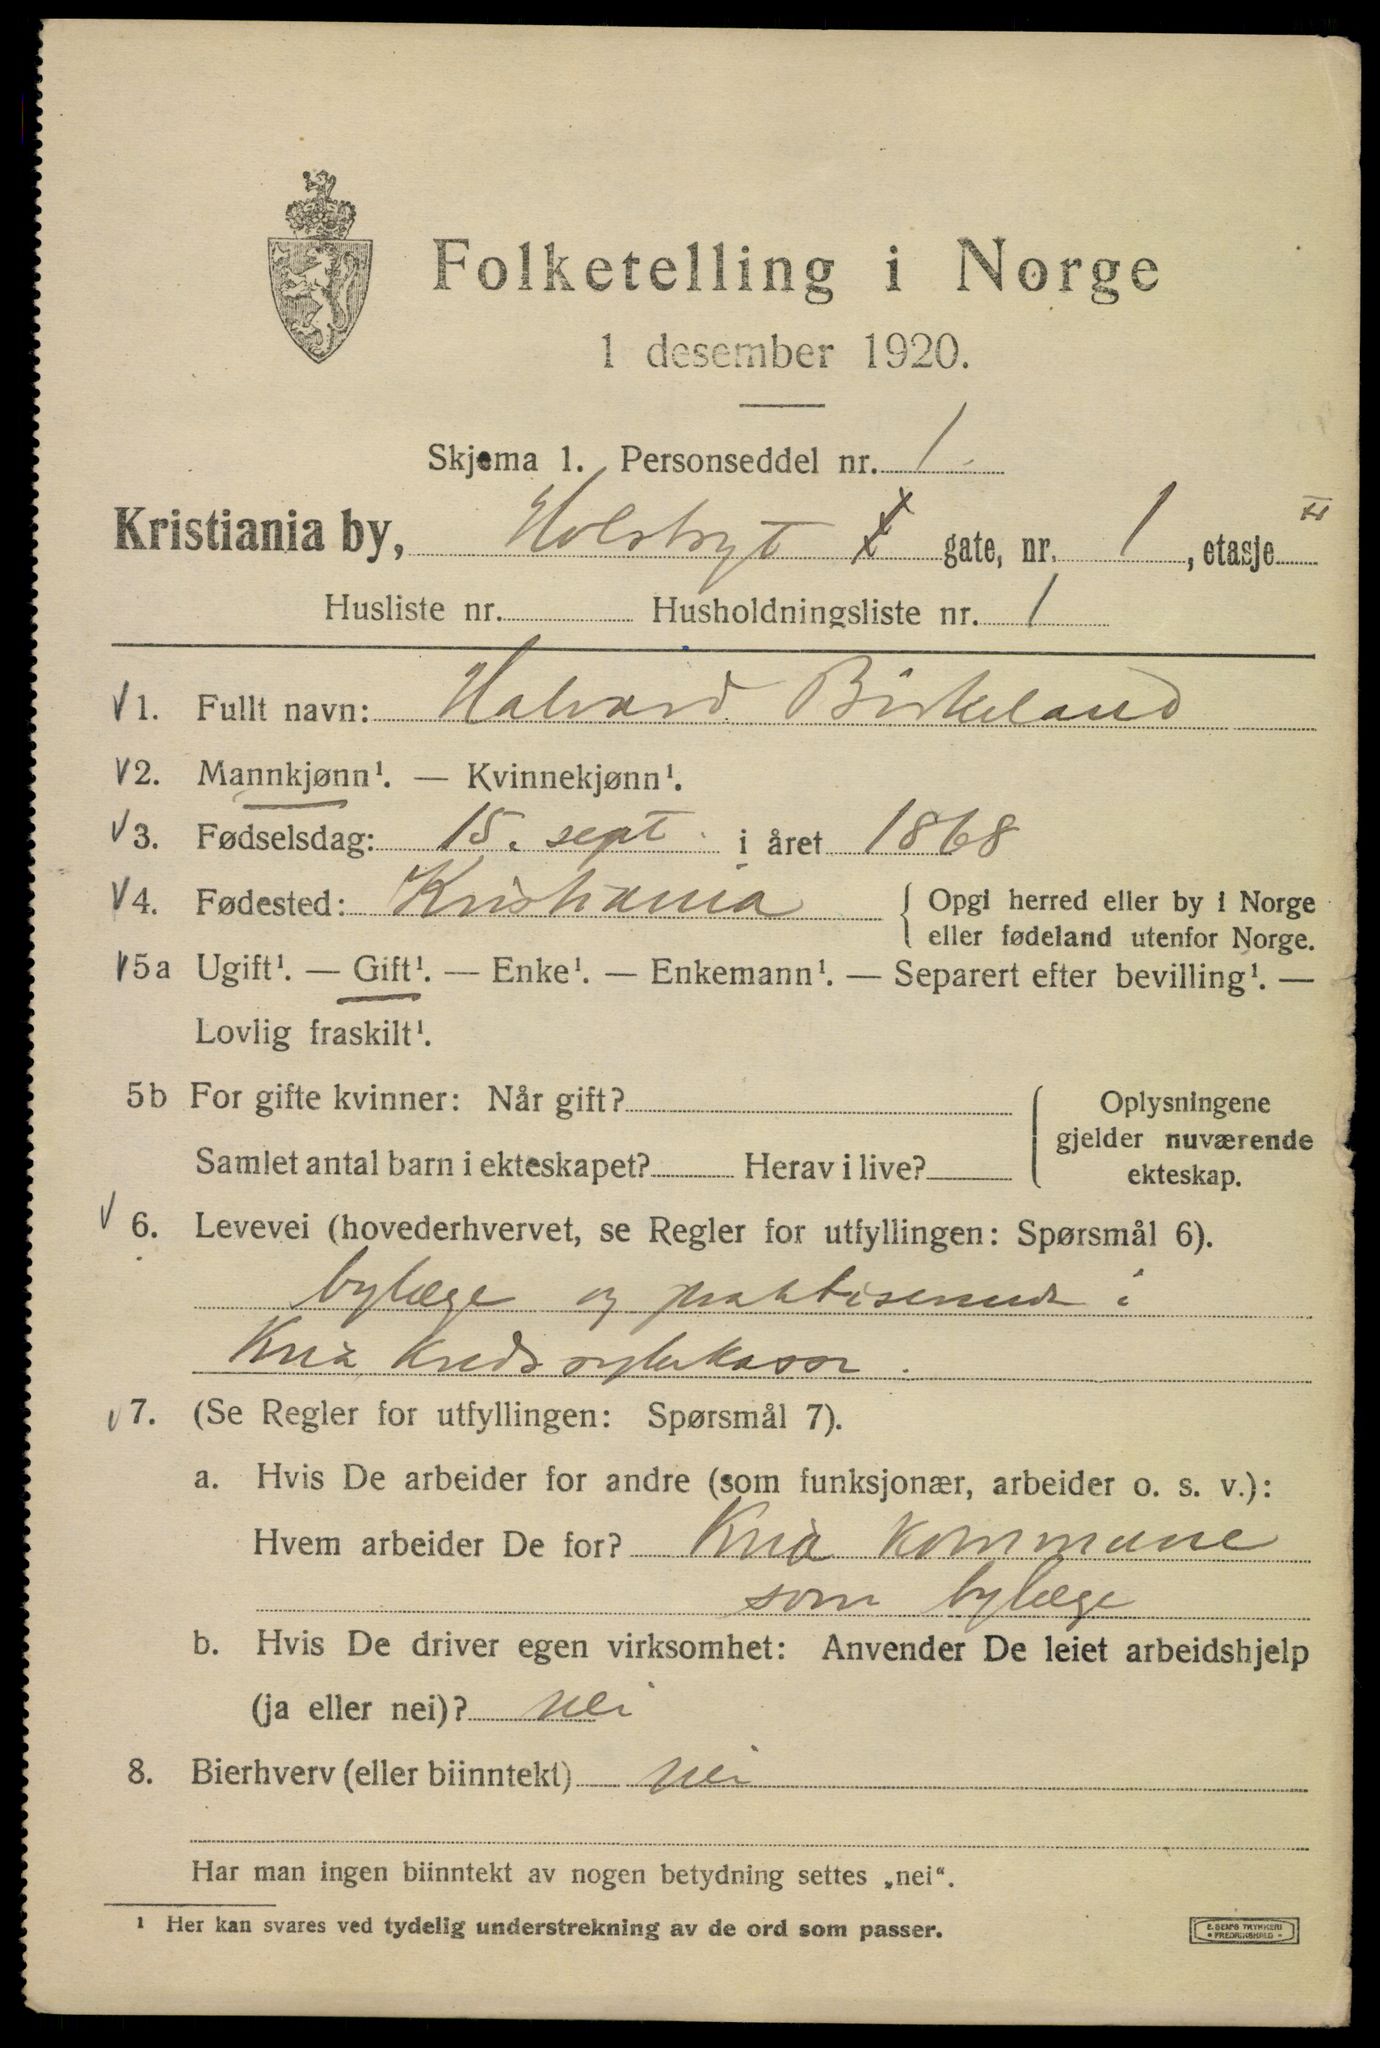 Folketelling i Norge
1 desember 1920.
Skjema 1. Personseddel nr. 1.
Kristiania by, gate, nr. 1, etasje II
Husliste nr. Husholdningsliste nr. 1
1. Fullt navn: Halvard Birkeland
2. Mannkjønn¹. — Kvinnekjønn¹.
3. Fødselsdag: 15. sept. i året 1868
4. Fødested: Kristiania { Opgi herred eller by i Norge
eller fødeland utenfor Norge.
5a Ugift¹. — Gift¹. — Enke¹. — Enkemann¹. — Separert efter bevilling¹. —
Lovlig fraskilt¹.
5b For gifte kvinner: Når gift? { Oplysningene
gjelder nuværende
Samlet antal barn i ekteskapet? Herav i live? ekteskap.
6. Levevei (hovederhvervet, se Regler for utfyllingen: Spørsmål 6).
bylæge og praktiserende i
Kria Kredssykekasse.
7. (Se Regler for utfyllingen: Spørsmål 7).
a. Hvis De arbeider for andre (som funksjonær, arbeider o. s. v.):
Hvem arbeider De for? Kria kommune
som bylæge
b. Hvis De driver egen virksomhet: Anvender De leiet arbeidshjelp
(ja eller nei)? nei
8. Bierhverv (eller biinntekt) nei
Har man ingen biinntekt av nogen betydning settes „nei“.
¹ Her kan svares ved tydelig understrekning av de ord som passer.
E. SEMS TRYKKERI
• FREDRIKSHALD •